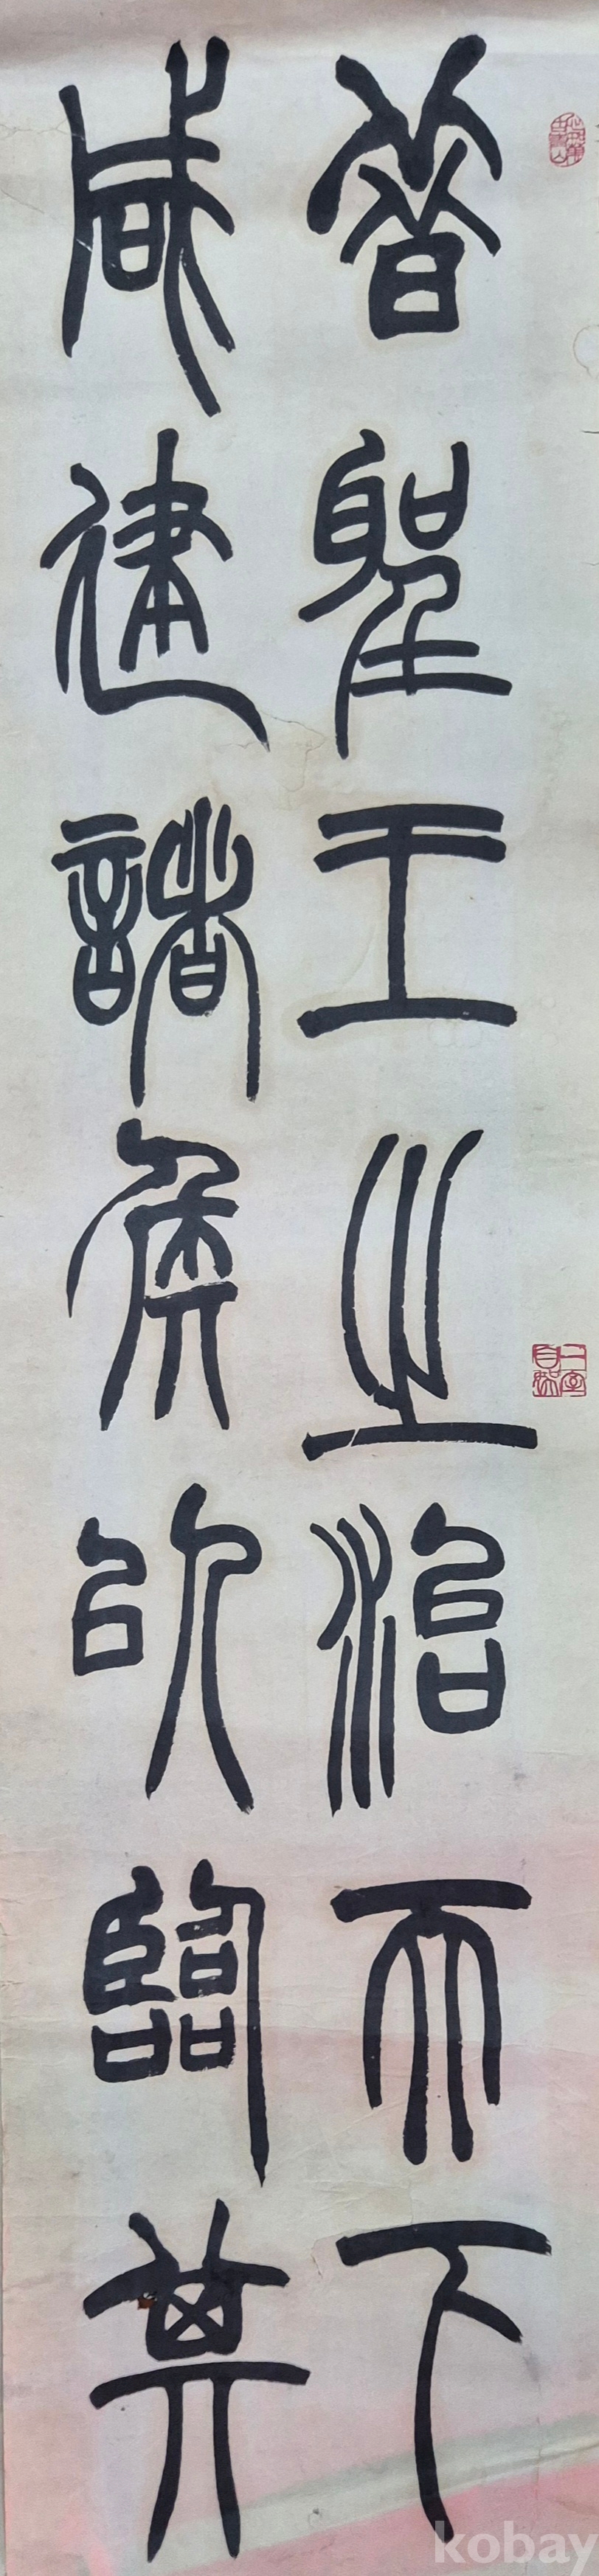 昔聖王之治天下
咸建諸侯以臨其
kobay